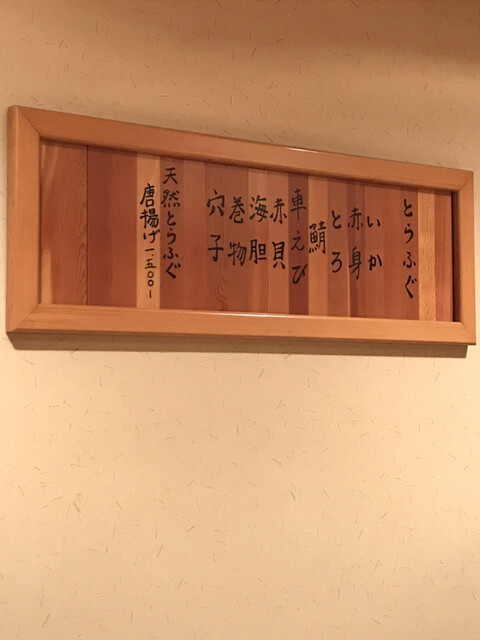 とらふぐ
いか
赤身
とろ
鯖
車えび
赤貝
海胆
巻物
穴子
天然とらふぐ
唐揚げ一、五〇〇ー